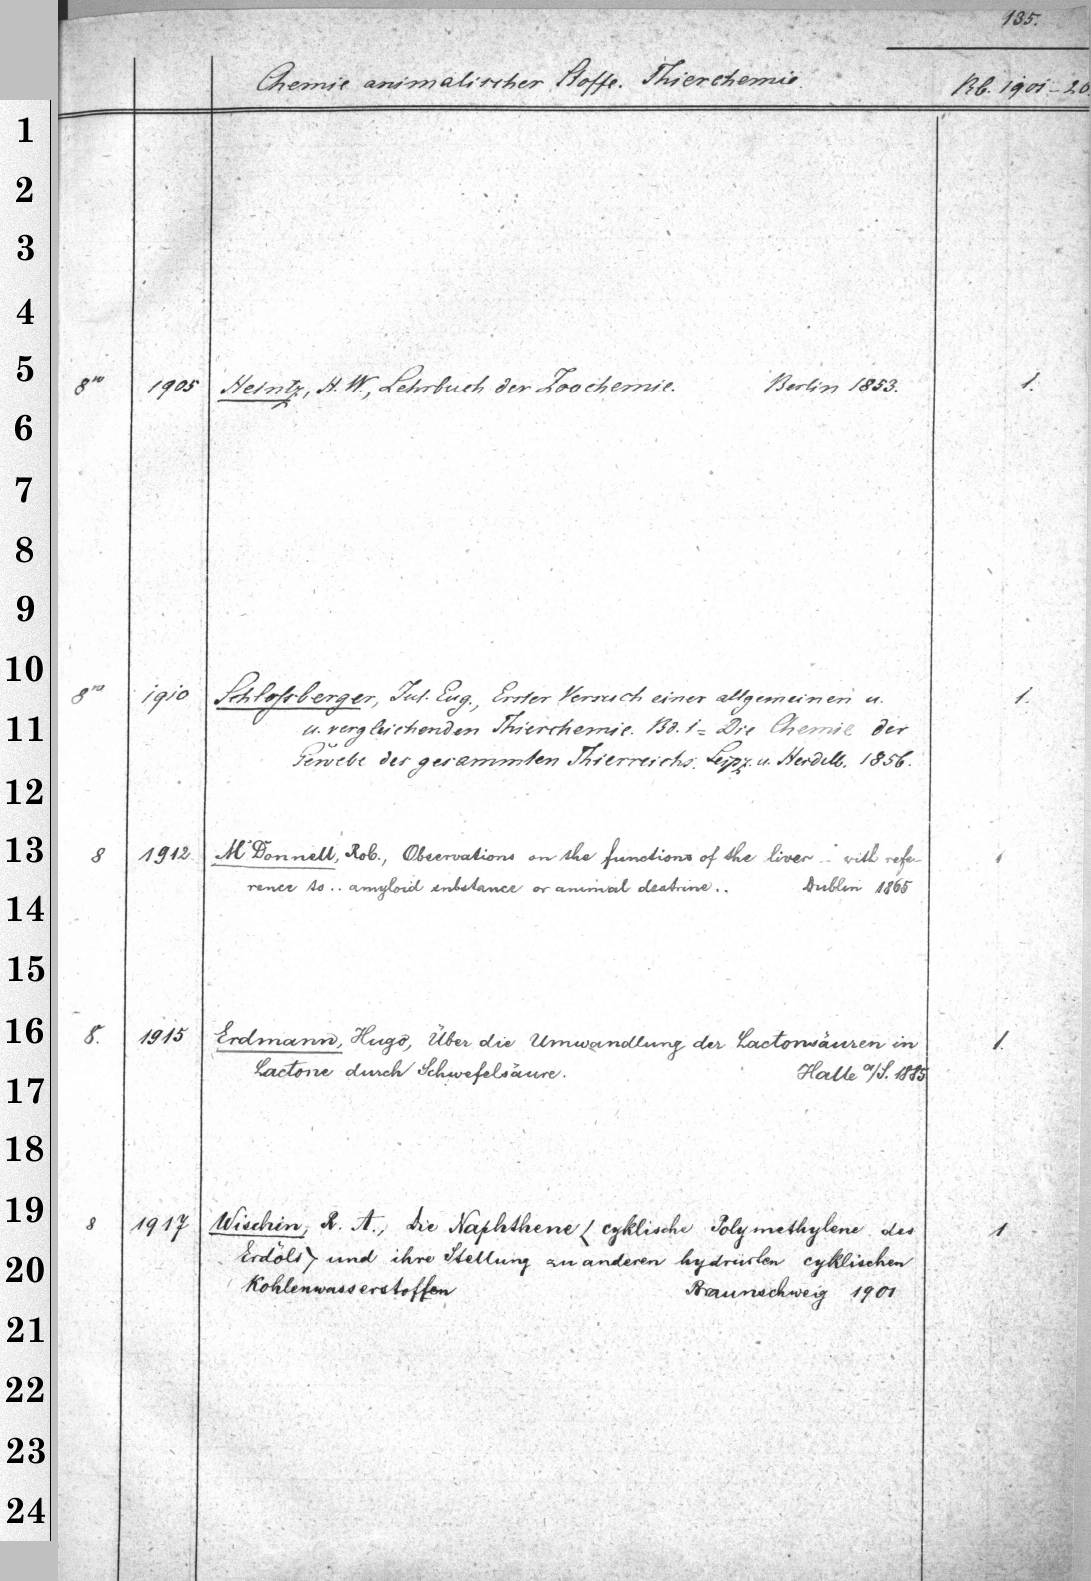 135.
Chemie animalischer Stoffe. Thierchemie. Rb. 1901-20
1
2
3
4
5
8vo 1905 Heintz, H. W., Lehrbuch der Zoochemie. Berlin 1853. 1.
6
7
8
9
10
8vo 1910 Schlossberger, Jul. Eug., Erster Versuch einer allgemeinen u. 1.
11
u. vergleichenden Thierchemie. Bd. 1 = Die Chemie der
Gewebe des gesammten Thierreichs. Leipz. u. Heidelb. 1856.
12
13
8 1912 McDonnell, Rob., Observations on the functions of the liver .. with refe- 1
rence to .. amyloid substance or animal dextrine .. Dublin 1865
14
15
16
8. 1915 Erdmann, Hugo, Über die Umwandlung der Lactonsäuren in 1.
Lactone durch Schwefelsäure. Halle a/S. 1885
17
18
19
8 1917 Wischin, R. A., Die Naphthene (cyklische Polymethylene des 1
Erdöls) und ihre Stellung zu anderen hydrürten cyklischen
20
Kohlenwasserstoffen Braunschweig 1901
21
22
23
24